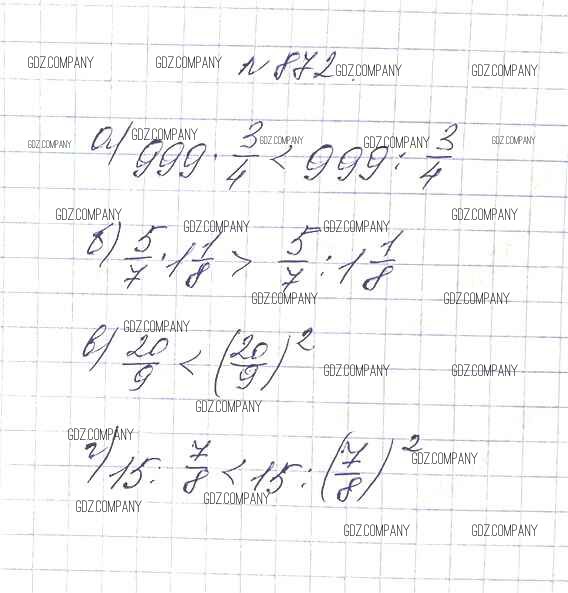 GDZ.COMPANY GDZ.COMPANY №872. GDZ.COMPANY GDZ.COMPANY
GDZ.COMPANY а) GDZ.COMPANY GDZ.COMPANY GDZ.COMPANY GDZ.COMPANY
999 · 3/4 < 999 : 3/4
GDZ.COMPANY GDZ.COMPANY GDZ.COMPANY GDZ.COMPANY
б) 5/7 · 1 1/8 > 5/7 : 1 1/8
GDZ.COMPANY GDZ.COMPANY
GDZ.COMPANY
в) 20/9 < (20/9)²
GDZ.COMPANY GDZ.COMPANY
GDZ.COMPANY
GDZ.COMPANY
г) 15 : 7/8 < 15 : (7/8)² GDZ.COMPANY
GDZ.COMPANY GDZ.COMPANY
GDZ.COMPANY GDZ.COMPANY